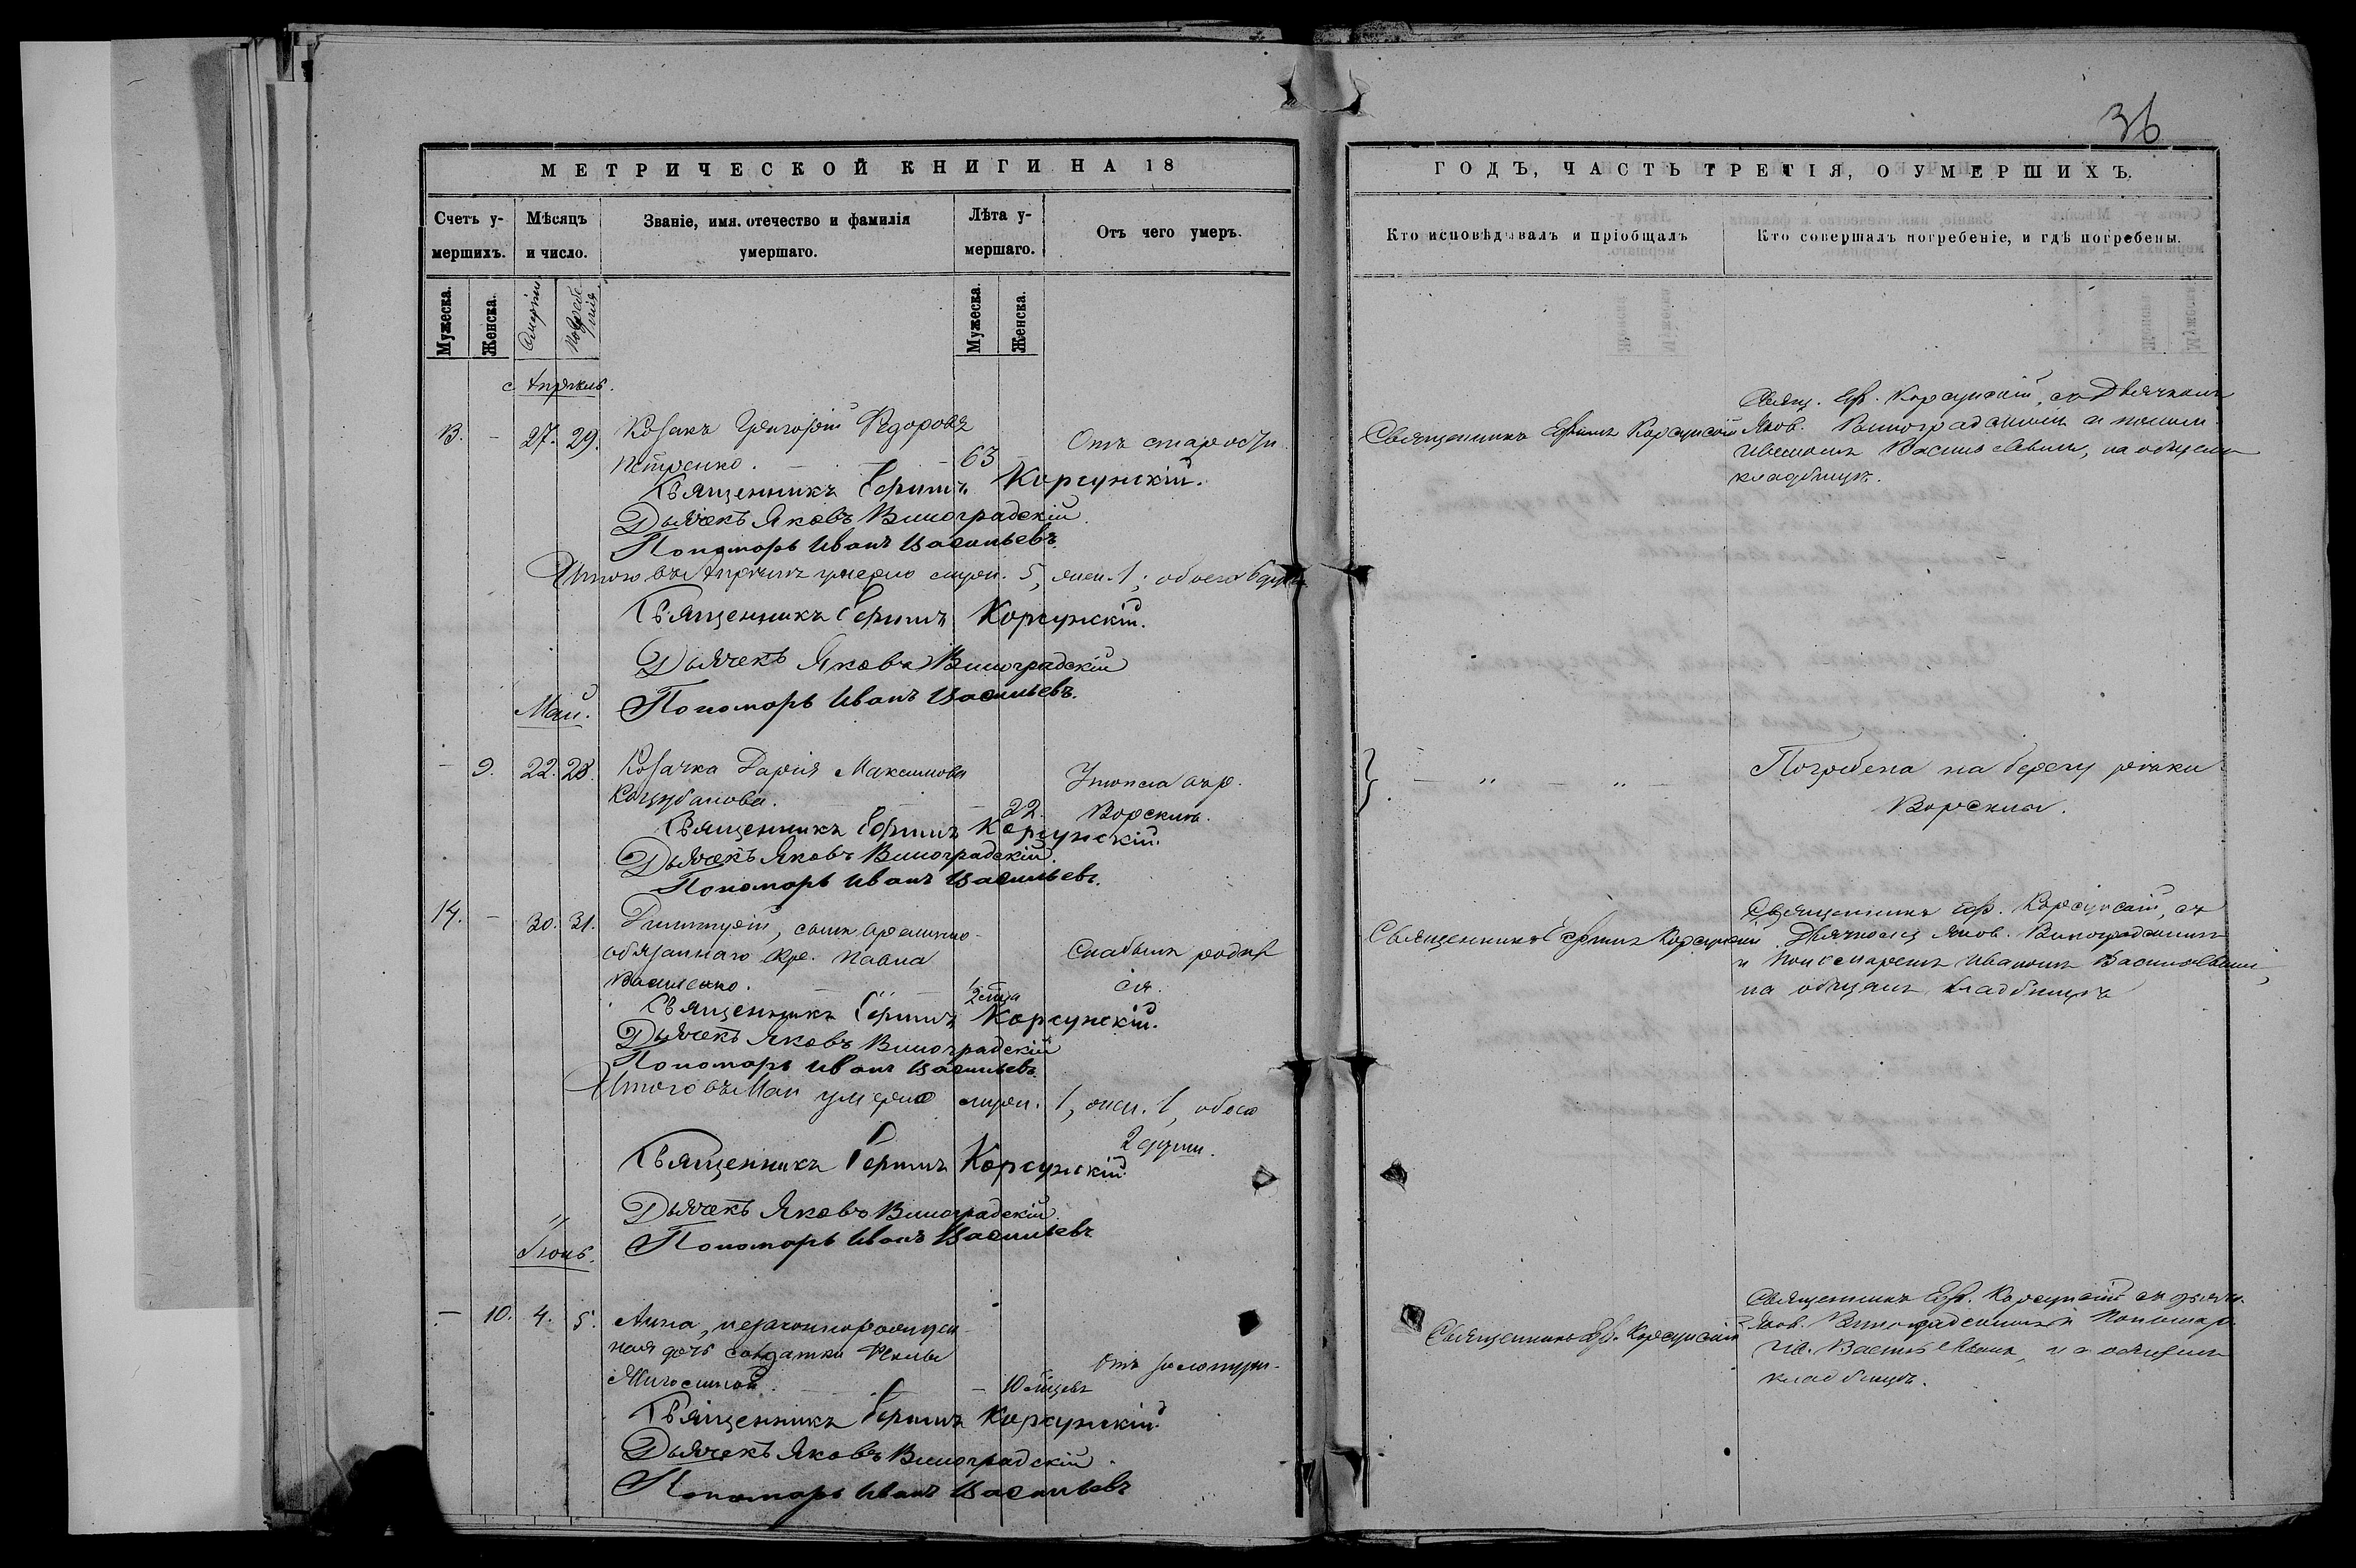 36
МЕТРИЧЕСКОЙ КНИГИ НА 18
ГОДЪ, ЧАСТЬ ТРЕТІЯ, О УМЕРШИХЪ.
Счетъ у-
мершихъ.
Мѣсяцъ
и число.
Званіе, имя. отечество и фамилія
умершаго.
Лѣта у-
мершаго.
Отъ чего умеръ.
Кто исповѣдывалъ и пріобщалъ
Кто совершалъ погребеніе, и гдѣ погребены.
Мужеска.
Женска.
Смерти
Погребе
нія
Мужеска.
Женска.
Апрѣль.
27. 29. Козакъ Григорій Ѳедоровъ
Петренко. 63
Отъ старости.
Священникъ Ефимъ Корсунскій
Свящ. Еф. Корсунскій, съ Дьячкомъ
Яков. Виноградскимъ и поном.
Иваномъ Васильевымъ, на общемъ
кладбищѣ.
Священникъ Ефимъ Корсунскій.
Дьячекъ Яковъ Виноградскій.
Пономарь Иванъ Васильевъ.
Итого въ Апрѣлѣ умерло муж. 5, жен. 1, обоего 6 душъ
Священникъ Ефимъ Корсунскій.
Дьячекъ Яковъ Виноградскій
Пономарь Иванъ Васильевъ.
Май.
- 9. 22. 23. Козачка Дарія Максимова
22.
Утопла въ р.
Ворсклѣ.
Погребена на берегу рѣки
Ворсклы.
Священникъ Ефимъ Корсунскій.
Дьячекъ Яковъ Виноградскій.
Пономарь Иванъ Васильевъ.
14. - 30. 31. Димитрій, сынъ временно-
обязаннаго кре. Павла
Василенко.
Слабымъ родил
ся.
Священникъ Ефимъ Корсунскій
Священникъ Еф. Корсунскій, съ
Дьячкомъ Яков. Виноградскимъ
и Пономаремъ Иваномъ Васильевымъ,
на общемъ кладбищѣ
Священникъ Ефимъ Корсунскій.
Дьячекъ Яковъ Виноградскій
Пономарь Иванъ Васильевъ.
Итого въ Маи умерло муж. 1, жен. 1, обоего
2 души.
Священникъ Ефимъ Корсунскій
Дьячекъ Яковъ Виноградскій
Пономарь Иванъ Васильевъ
Іюнь.
- 10. 4. 5. Анна, незаконнорожден-
ная дочь солдатки Ѳеклы
10 мѣсяц.
Отъ золотухи.
Священникъ Еф. Корсунскій
Священникъ Еф. Корсунскій съ дьячк.
Яков. Виноградскимъ и Пономар.
Ив. Васильевымъ, на общемъ
кладбищѣ.
Священникъ Ефимъ Корсунскій
Дьячекъ Яковъ Виноградскій.
Пономарь Иванъ Васильевъ